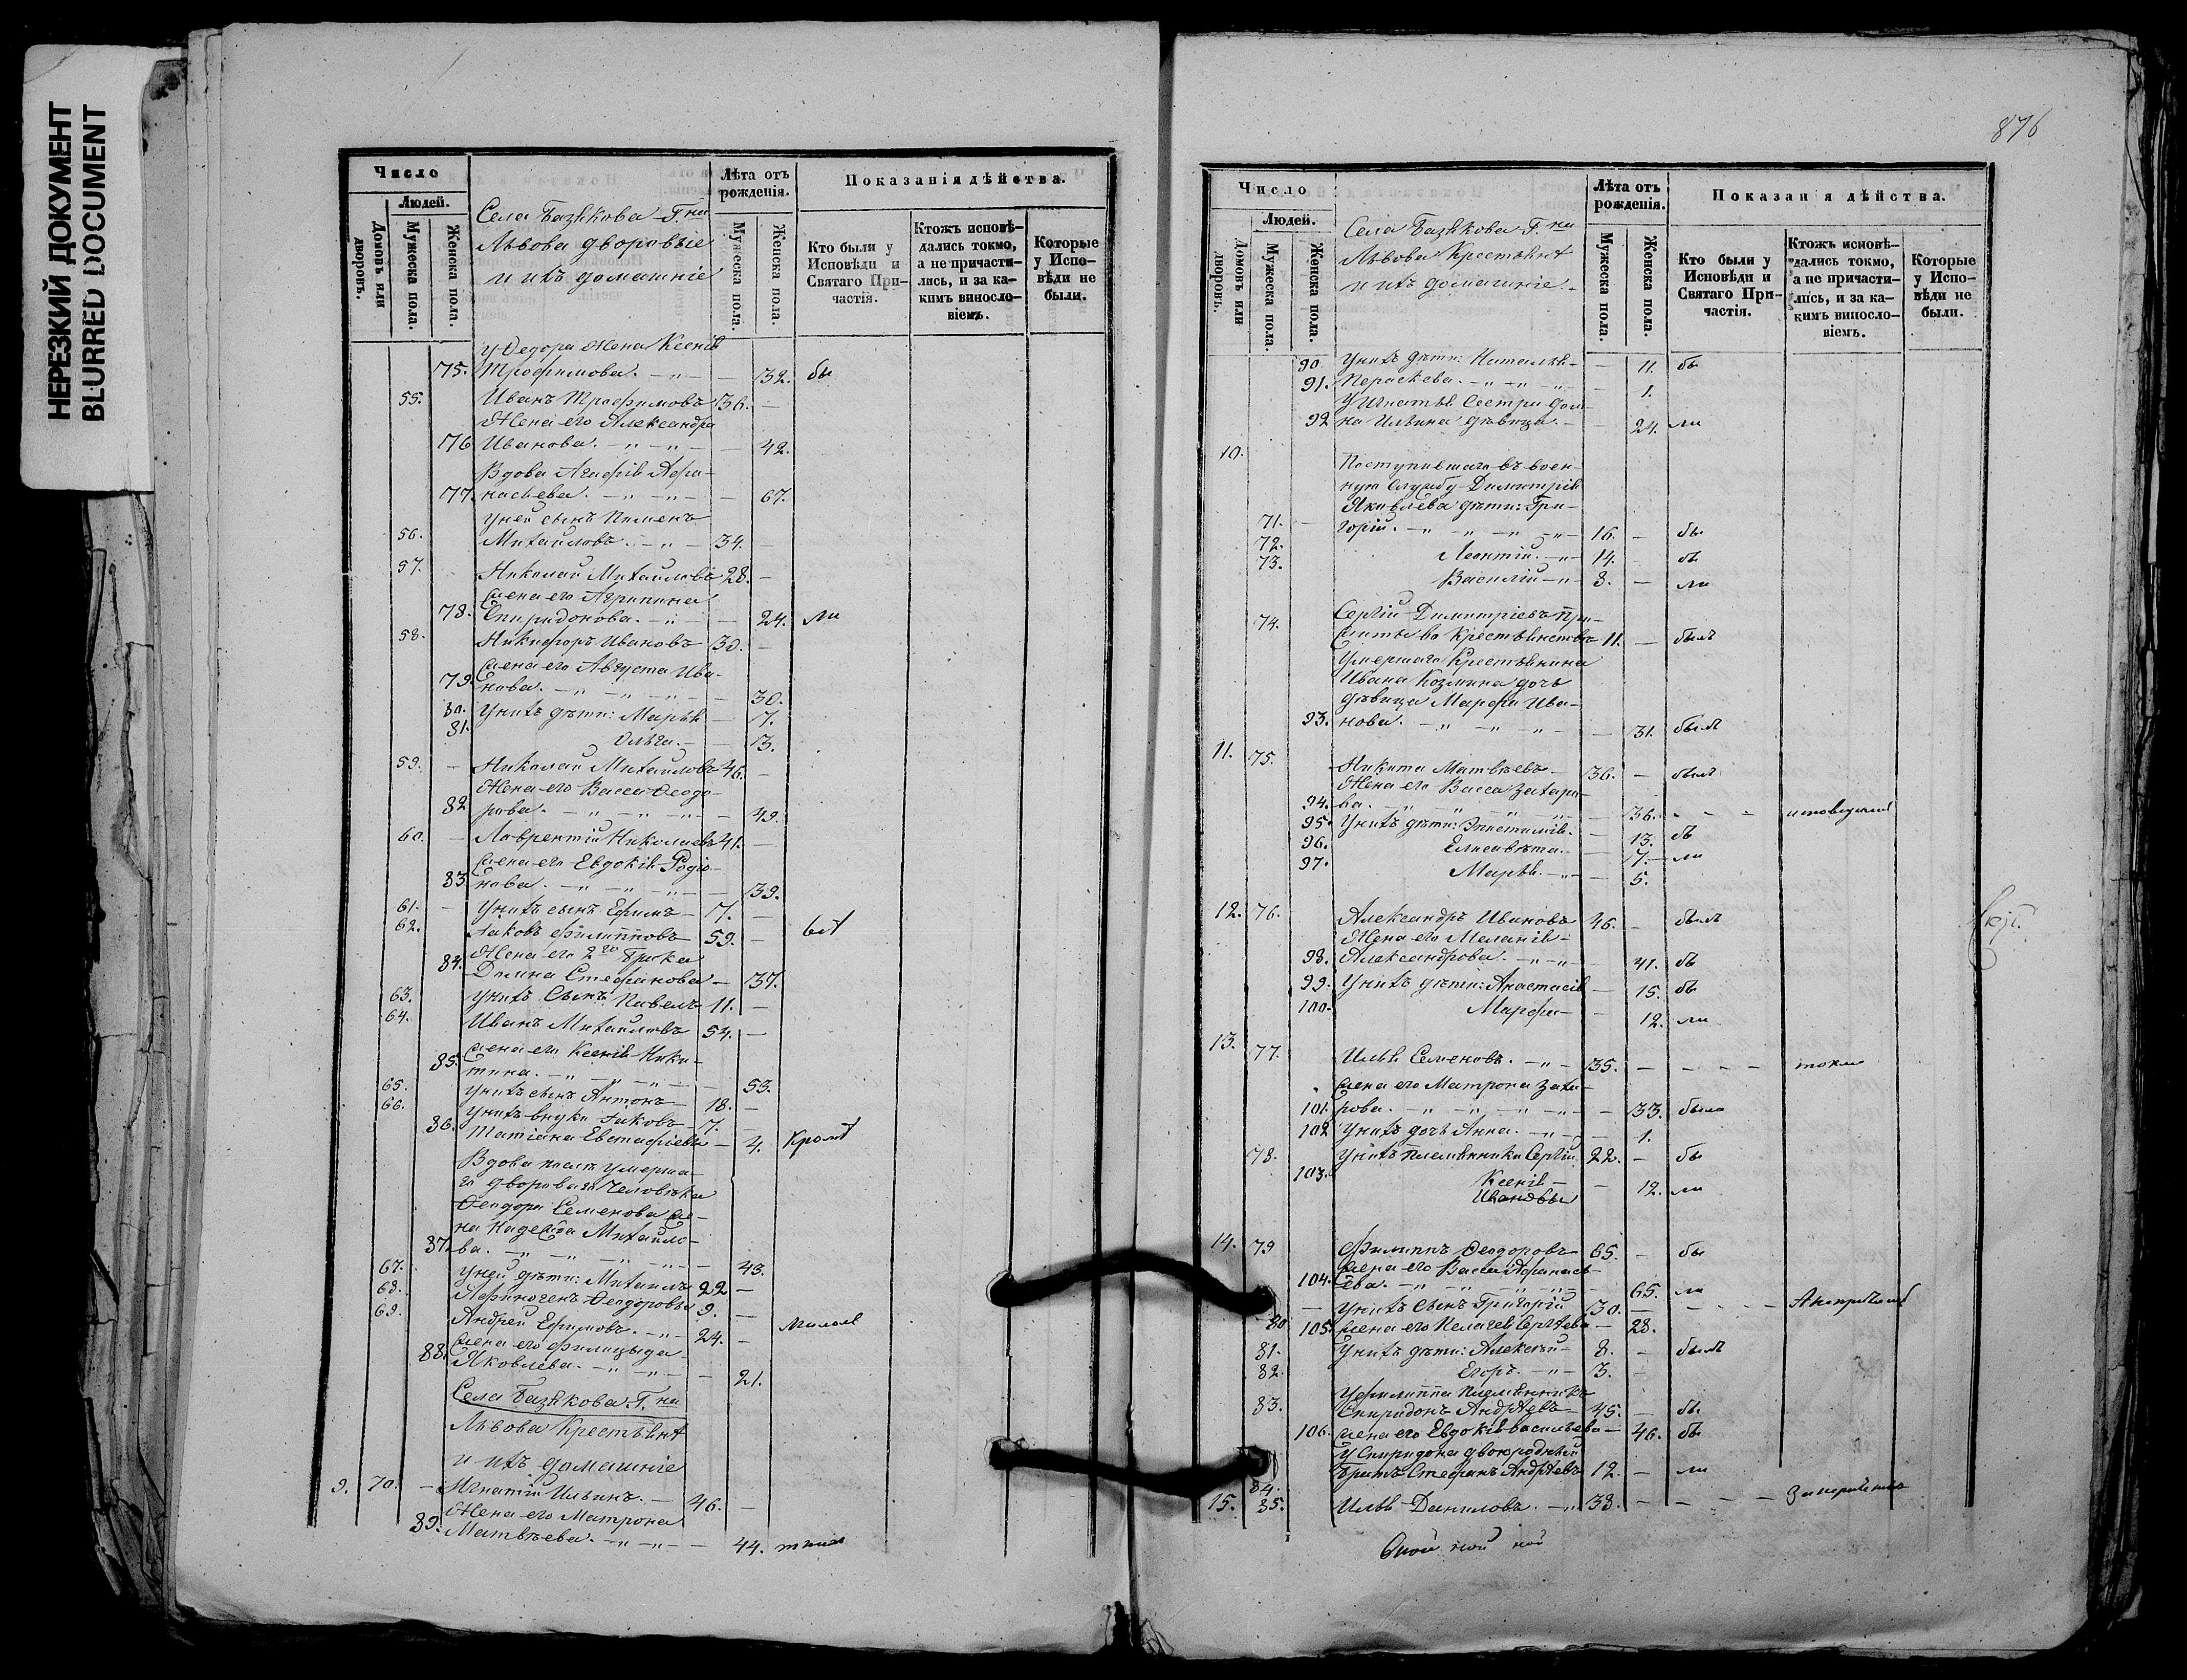 НЕРЕЗКИЙ ДОКУМЕНТ
BLURRED DOCUMENT
Число
Людей.
Домовъ или дворовъ.
Мужеска пола.
Женска пола.
Села Базѣкова Г.на
Львова дворовые
и ихъ домашніе
Лѣта отъ рожденія.
Мужеска пола.
Женска пола.
Показанія дѣйства.
Кто были у Исповѣди и Святаго Причастія.
Ктожъ исповѣдались токмо, а не причастились, и за какимъ винословіемъ.
Которые у Исповѣди не были.
У Ѳедора жена Ксенія
75. Трофимова. 32. бы
55. Иванъ Трофимовъ 36.
Жена его Александра
76 Иванова. 42.
Вдова Агафія Афа-
77. насьева. 67.
У ней сынъ Пименъ
56. Михайловъ. 34.
57. Николай Михайловъ 28.
Жена его Агрипина
78. Спиридонова. 24. ли
58. Никифоръ Ивановъ 30.
Жена его Августа Ива-
79. нова. 30.
80. У нихъ дѣти: Марья 7.
81. Ольга. 3.
59. Николай Михайловъ 46.
Жена его Васса Ѳеодо-
82 рова. 49.
60. Лаврентій Николаевъ 41.
Жена его Евдокія Родіо-
83 нова. 39.
61. У нихъ сынъ Ефимъ 7.
62. Іаковъ Филипповъ 59.
Жена его 2го брака
84. Домна Стефанова 37.
63. У нихъ Сынъ Павелъ 11.
64. Иванъ Михайловъ 54.
Жена его Ксенія Ники-
85. тина. 53.
65. У нихъ сынъ Антонъ 18.
66. У нихъ внуки Іаковъ 7.
86. Татіана Евстафіевы 4. Кромѣ
Вдова послѣ умерша-
го двороваго Человѣка
Ѳеодора Семенова же-
на Надежда Михайло-
87. ва. 43.
67. У ней дѣти: Михаилъ 22
68. Афиногенъ Ѳеодоровы 9.
69. Андрей Ефимовъ. 24. малол
Жена его Филицыда
88. Яковлева. 21.
Села Базѣкова Г.на
Львова Крестьянѣ
и ихъ домашніе
9. 70. Игнатій Ильинъ. 46.
Жена его Матрона
89. Матвѣева. 44.
876
Число
Людей.
Домовъ или дворовъ.
Мужеска пола.
Женска пола.
Села Базѣкова Г.на
Львова Крестьянѣ
и ихъ домашніе
Лѣта отъ рожденія.
Мужеска пола
Женска пола.
Показан я дѣйства.
Кто были у Исповѣди и Святаго Причастія.
Ктожъ исповѣдались токмо, а не причастились, и за какимъ винословіемъ.
Которые у Исповѣди не были.
90 У нихъ дѣти: Наталья 11. бы
91. Пераскева. 1.
У Игнатья Сестра Дом-
92 на Ильина дѣвица. 24. ли
10.
Поступившаго въ воен-
ную службу Димитрія
Яковлева дѣти: Гри-
71. горій. 16. бы
72. Леонтій. 14. бы
73. Василій 8. ли
Сергій Димитріевъ При-
74. Крестьянство 11. былъ
Умершаго Крестьянина
Ивана Козмина дочь
дѣвица Марфа Ива-
93. нова. 31. была
11. 75. Никита Матвѣевъ 36. былъ
Жена его Васса Захаро-
94. ва. 36. исповѣдалась
95. У нихъ дѣти: Эпистимія. 13. бы
96. Елисавета. 7. ли
97. Марья. 5.
12. 76. Александръ Ивановъ 46. былъ
Жена его Меланія
98. Александрова. 41. бы
99. У нихъ дѣти: Анастасія 15. бы
100. Марфа 12. ли
13. 77. Илья Семеновъ. 35. токмо
Жена его Матрона Заха-
101. рова. 33. была
102 У нихъ дочь Анна. 1.
78. У нихъ племянники Сергій 22. бы
103. Ксенія 12. ли
Ивановы
14. 79 Филиппъ Ѳеодоровъ 65. бы
Жена его Васса Афанась-
104. ева. 65. ли
80 У нихъ Сынъ Григорій 30.
105. Жена его Пелагея Сергѣева 28.
81. У нихъ дѣти: Алексѣй 8. былъ
82. Егоръ. 3.
У Филиппа племянникъ
83. Спиридонъ Андрѣевъ 45. бы
106. Жена его Евдокія Васильева 46. бы
У Спиридона двоюродный
84. братъ Стефанъ Андрѣевъ 12. ли
15. 85. Илья Даниловъ. 38.